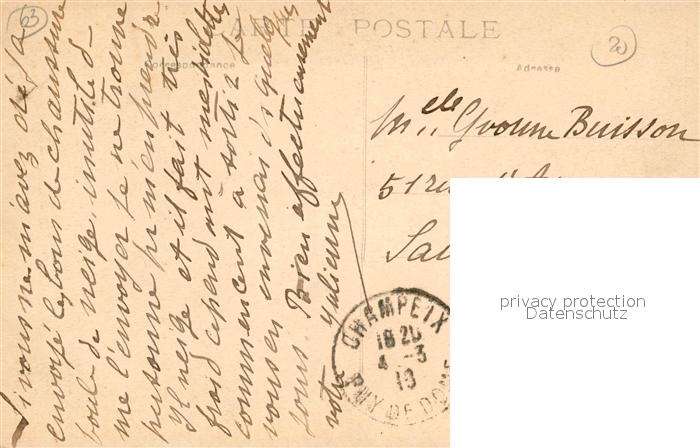 CARTE POSTALE
Correspondance
Adresse
63
20
Si vous ne m'avez déjà
envoyé le bons de chaussure
boule de neige, inutile de
me l'envoyer je ne trouve
personne pr m'en prendre
Il neige et il fait très
froid cependant mes violettes
commencent a sortir je
vous en enverrais d'ici quelques
jours. Bien affectueusement
votre Julienne
Melle Yvonne Buisson
51 rue
CHAMPEIX
18 20
4 - 3
13
PUY DE DOME
privacy protection
Datenschutz